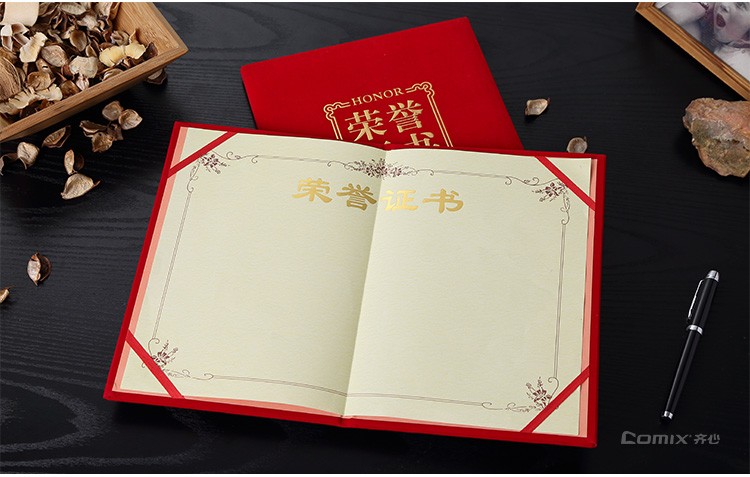 HONOR
荣誉
书
荣誉证书
comix 齐心